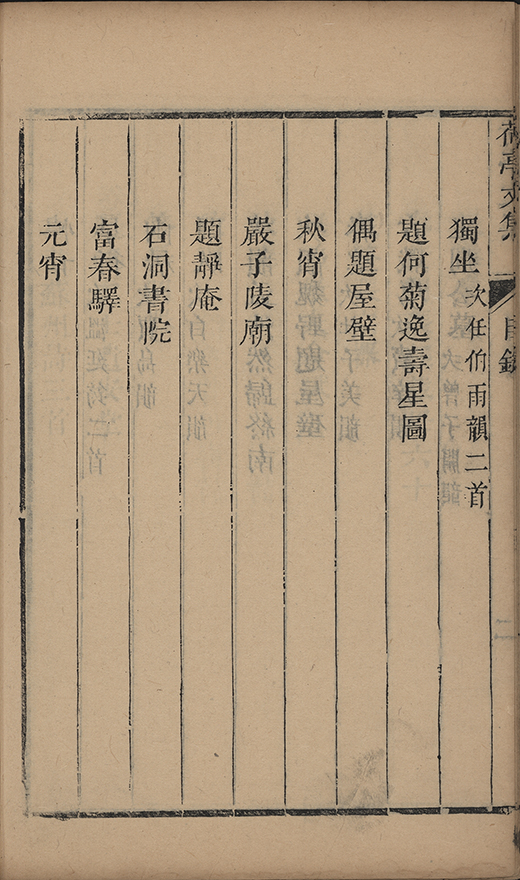 亭文集
目錄
獨坐 次任伯雨韻二首
題何菊逸壽星圖
偶題屋壁
秋宵
嚴子陵廟
題靜庵
石洞書院
富春驛
元宵